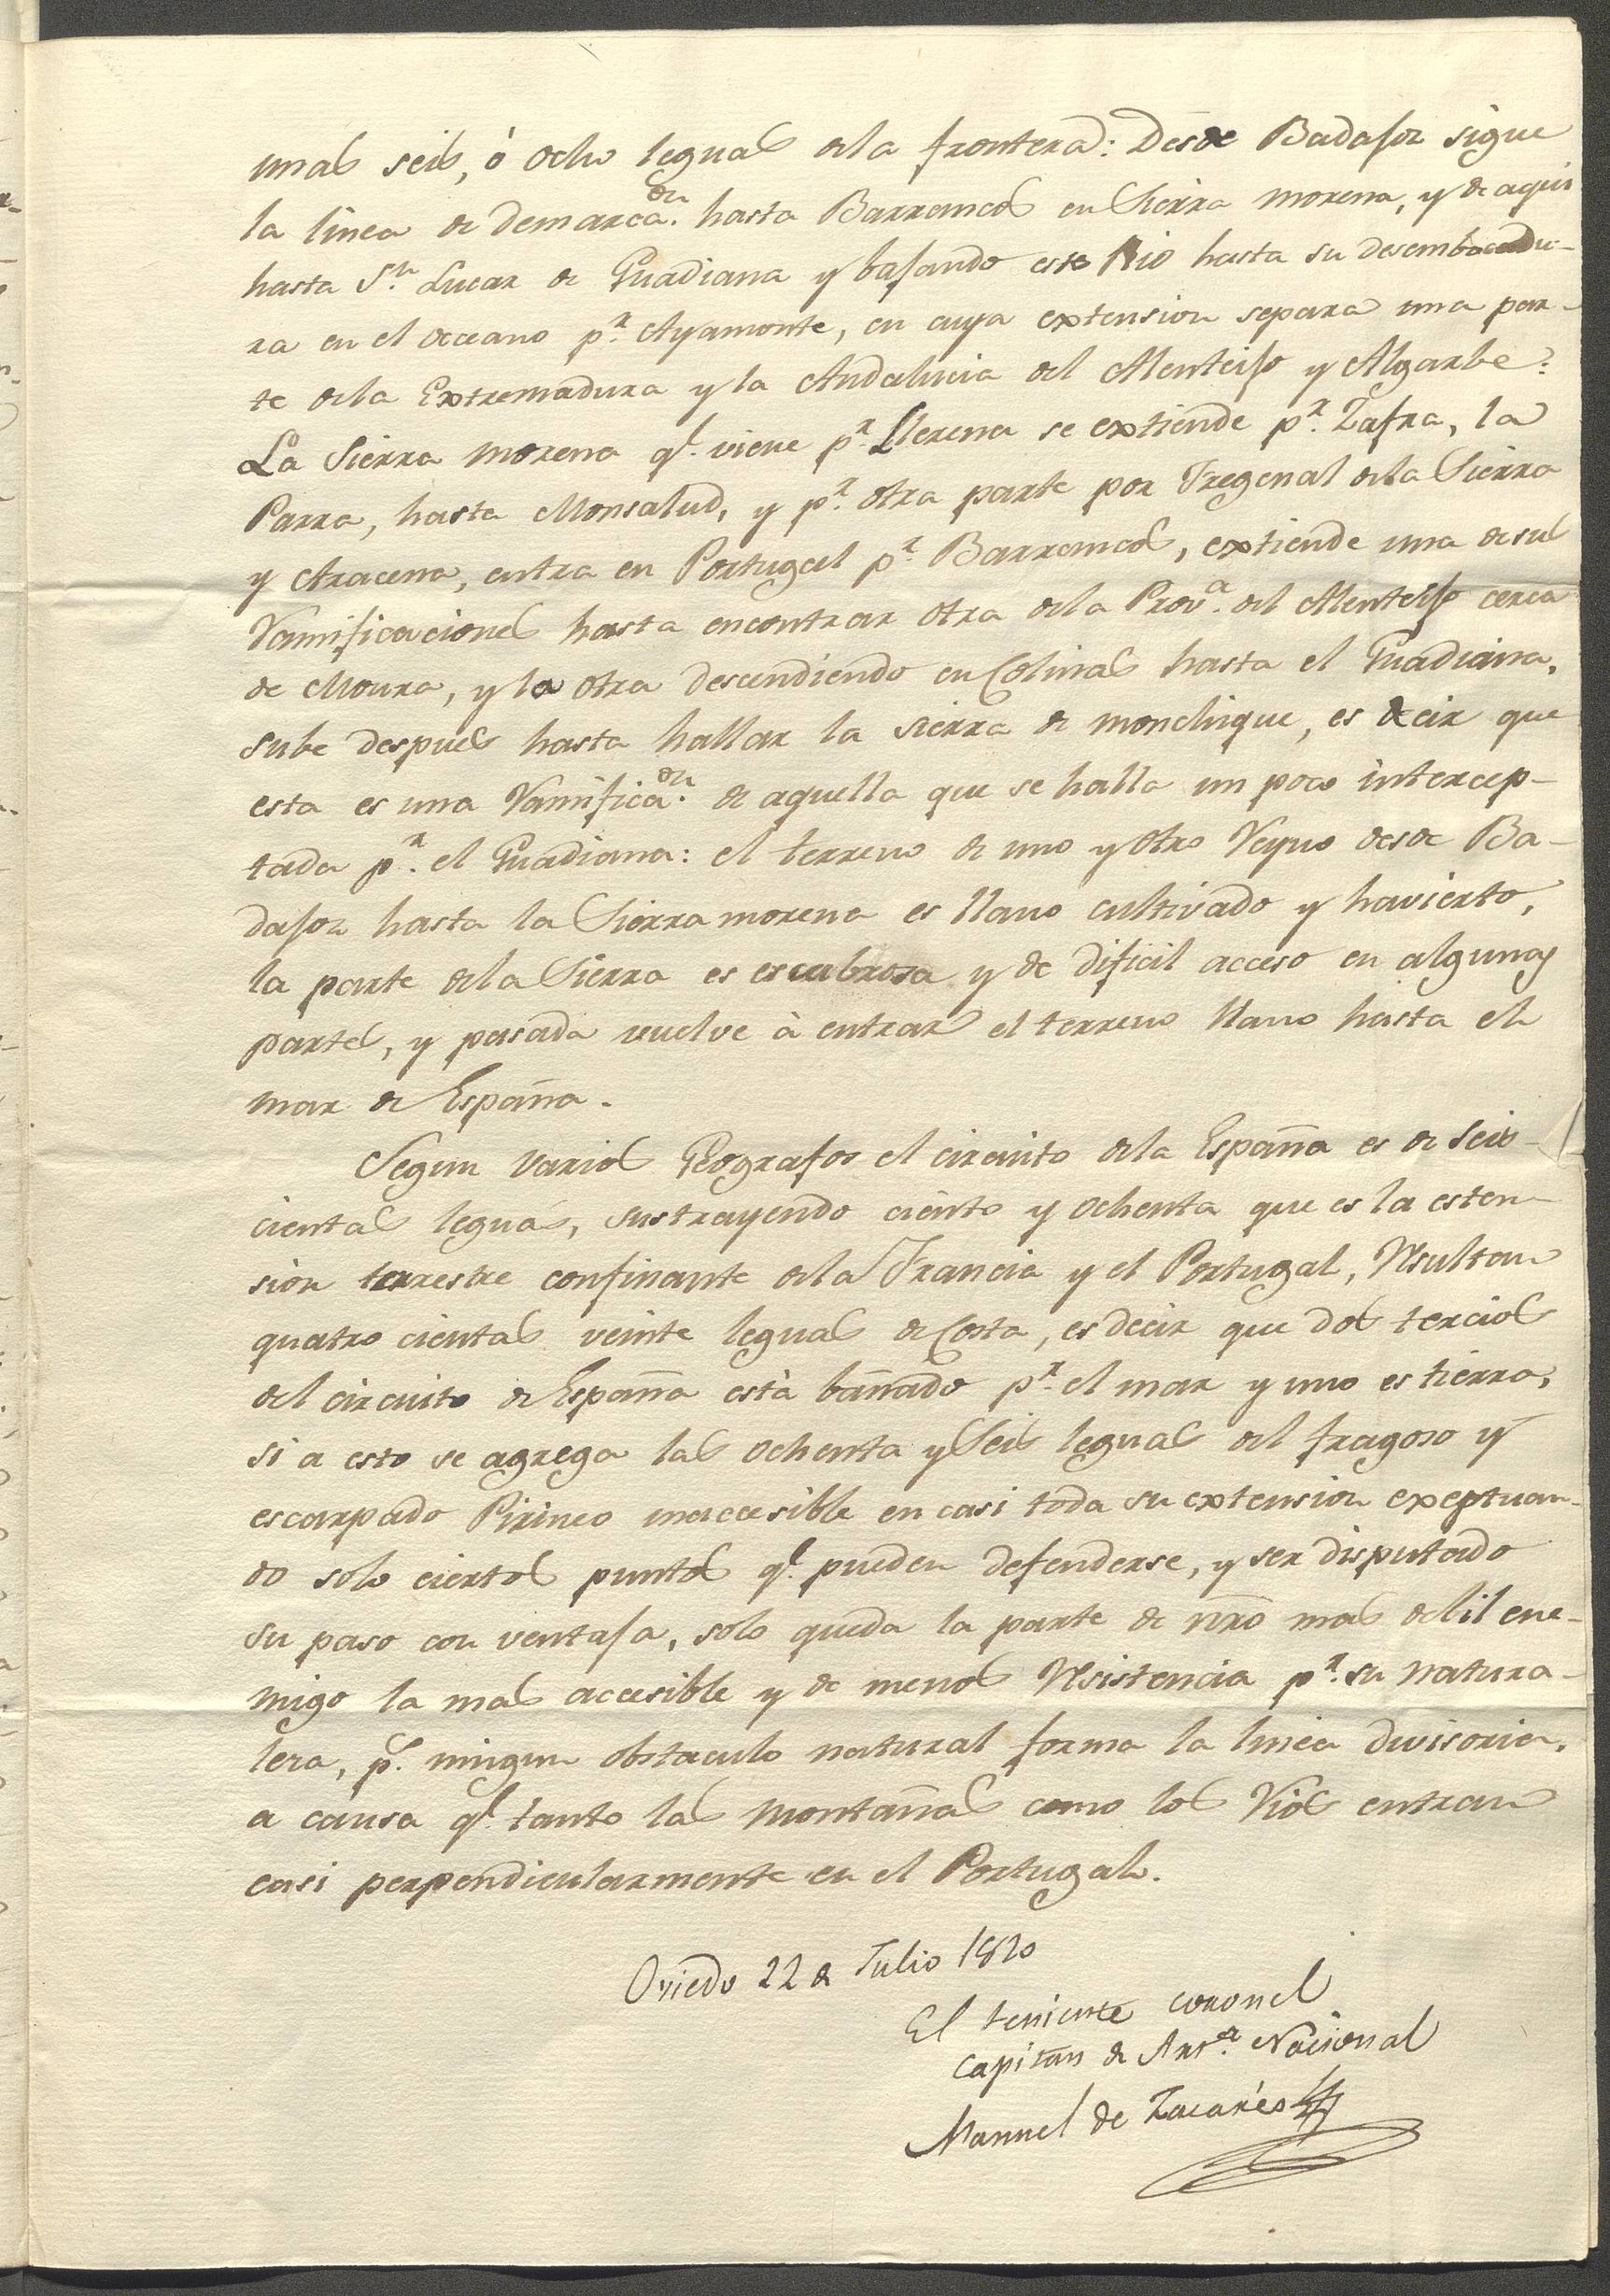 unas seis, ó ocho leguas dela frontera: Desde Badajoz sigue
la linea de demarcaon. hasta Barrancos en Sierra morena, y de aqui
hasta Sn. Lucar de Guadiana y bajando este Rio hasta su desembocadu-
ra en el Occeano pr. Ayamonte, en cuya extension separa una par-
te dela Extremadura y la Andalucia del Alenteijo y Algarbe:
La Sierra morena qe. viene pr. Llerena se extiende pr. Zafra, la
Parra, hasta Monsalud, y pr. otra parte por Fregenal dela Sierra
y Aracena, entra en Portugal pr. Barrancos, extiende una de sus
Ramificaciones hasta encontrar otra dela Prova. del Alenteijo cerca
de Moura, y la otra descendiendo en Colinas hasta el Guadiana,
sube despues hasta hallar la sierra de monchique, es decir que
esta es una Ramificaon. de aquella que se halla un poco intercep-
tada pr. el Guadiana: el terreno de uno y otro Reyno desde Ba-
dajoz hasta la Sierra morena es llano cultivado y havierto,
la parte dela Sierra es escabrosa y de dificil acceso en algunas
partes, y pasada vuelve à entrar el terreno llano hasta el
mar de España.
Segun varios Geografos el circuito dela España es de seis-
cientas leguas, sustrayendo ciento y ochenta que es la esten-
sion terrestre confinante dela Francia y el Portugal, Resultan
quatro cientas veinte leguas de Costa, es decir que dos tercios
del circuito de España està bañado pr. el mar y uno es tierra,
si a esto se agrega las ochenta y seis leguas del fragoso y
escarpado Pirineo inaccesible en casi toda su extension exeptuan-
do solo ciertos puntos qe. pueden defenderse, y ser disputado
su paso con ventaja, solo queda la parte de nro mas debil ene-
migo la mas accesible y de menos Resistencia pr. su natura-
leza, ps. ningun obstaculo natural forma la linea divisoria,
a causa qe. tanto las montañas como los Rios entran
casi perpendicularmente en el Portugal.
Oviedo 22 de Julio 1820
El teniente coronel
capitan de Arta. Nacional
Manuel de Zacarés